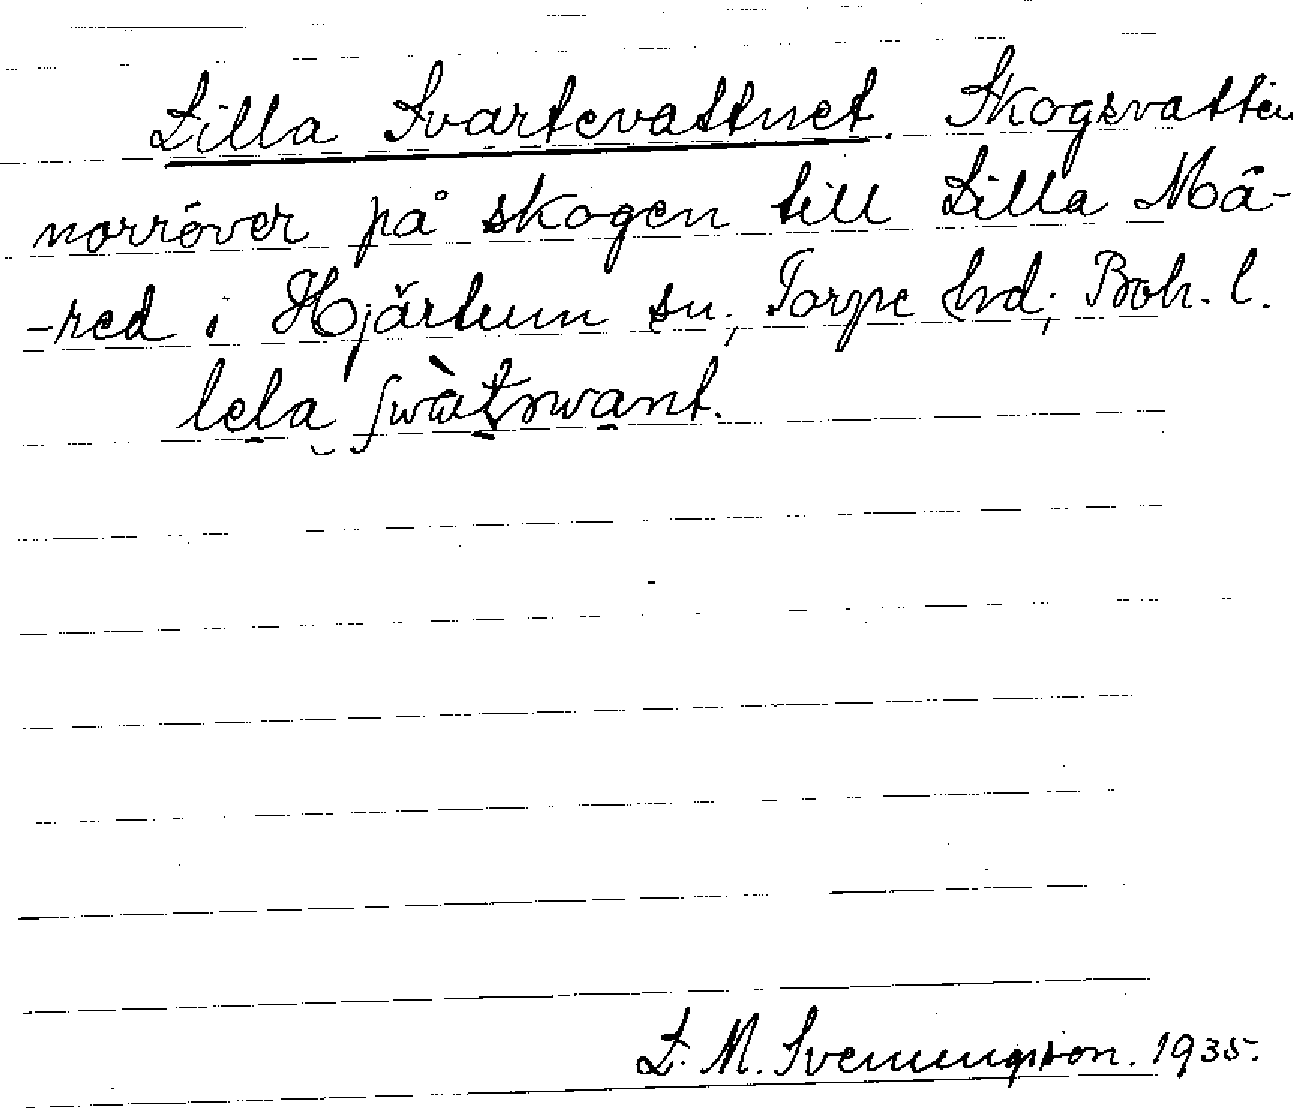 Lilla Svartevattnet. Skogsvatten
norröver på skogen till Lilla Må-
-red i Hjärtum sn; Torpe hd; Boh. l.
lela
L. M. Svenungsson. 1935.